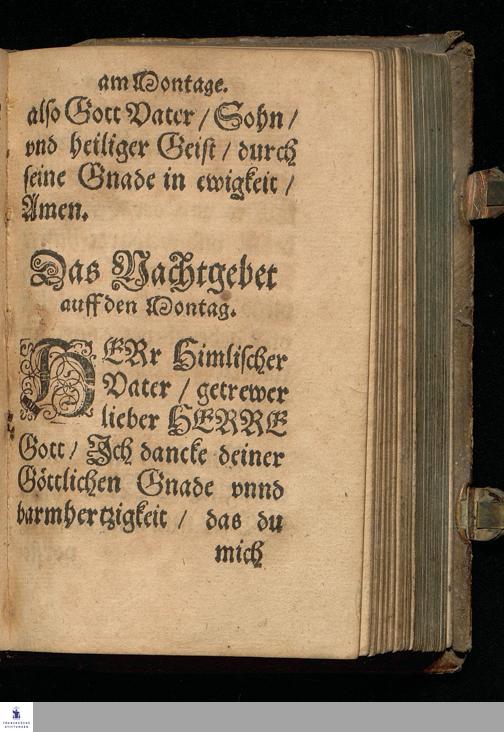 am Montage.
also Gott Vater / Sohn /
vnd heiliger Geist / durch
seine Gnade in ewigkeit /
Amen.
Das Nachtgebet
auff den Montag.
HERr Himlischer
Vater / getrewer
lieber HERRE
Gott / Ich dancke deiner
Göttlichen Gnade vnnd
barmhertzigkeit / das du
mich
FRANCKESCHE
STIFTUNGEN